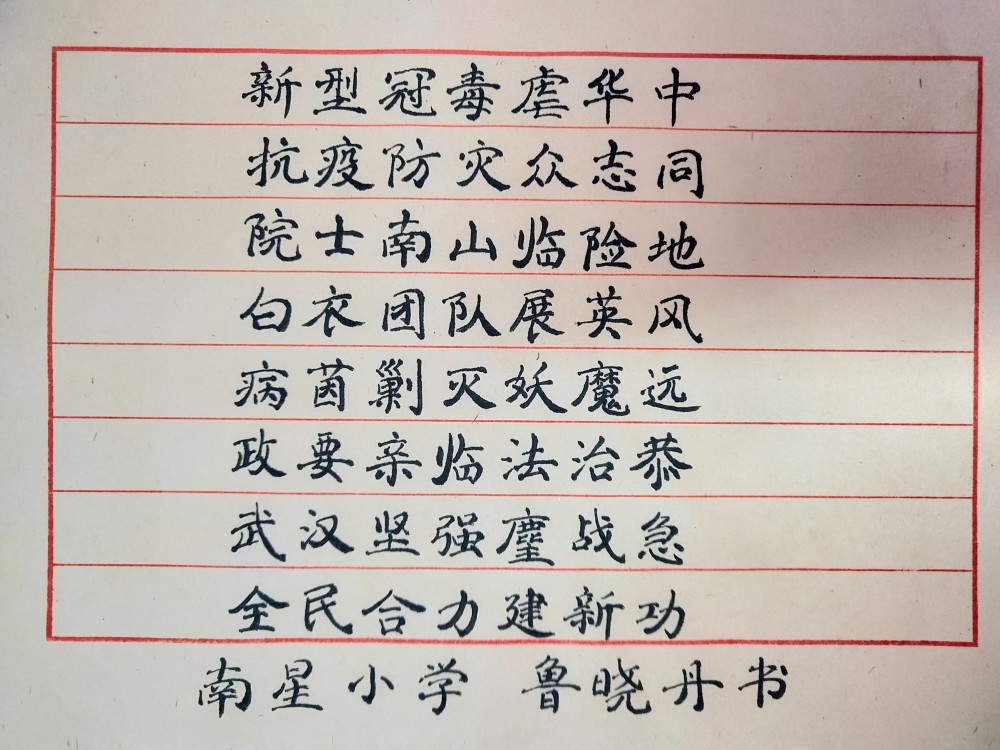 新型冠毒虐华中
抗疫防灾众志同
院士南山临险地
白衣团队展英风
病茵剿灭妖魔远
政要亲临法治恭
武汉坚强鏖战急
全民合力建新功
南星小学 鲁晓丹书